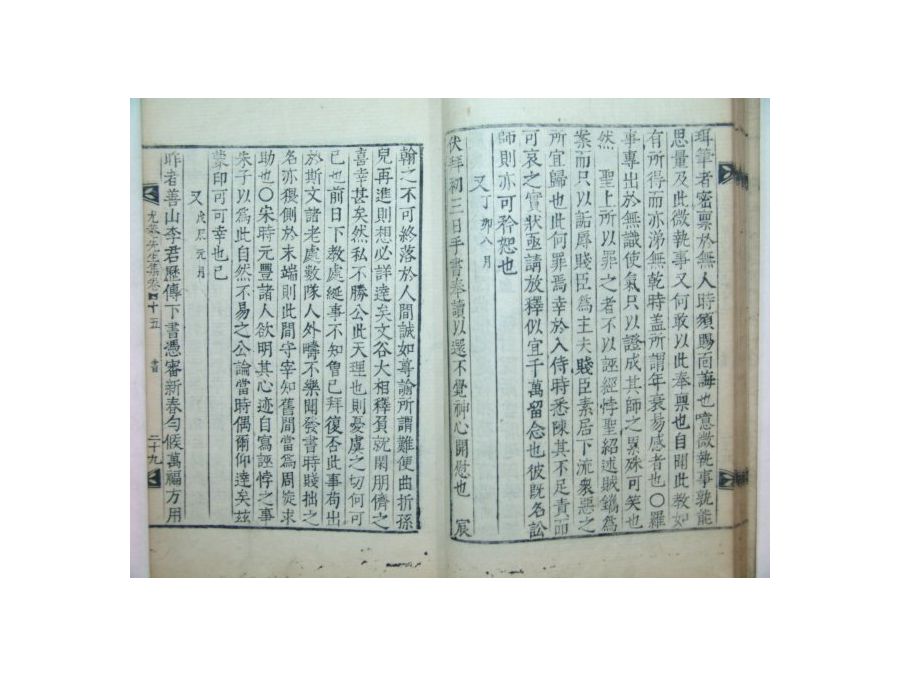 珥筆者密稟於無人時須賜面誨也噫微執事孰能
思量及此微執事又何敢以此奉稟也自聞此教如
有所得而亦涕無乾時盖所謂年衰易感者也○羅
事專出於無識使氣只以證成其師之累殊可笑也
然 聖上所以罪之者不以誣經悖聖紹述賊鑴爲
案而只以詬辱賤臣爲主夫賤臣素居下流衆惡之
所宜歸也此何罪焉幸於入侍時悉陳其不足責而
可哀之實狀亟請放釋似宜千萬留念也彼旣名訟
師則亦可矜恕也
又 丁卯八月
伏拜初三日手書奉讀以還不覺神心開慰也 宸
翰之不可終落於人間誠如尊諭所謂難便曲折孫
兒再進則想必詳達矣文谷大相釋負就閑朋儕之
喜幸甚矣然私不勝公此天理也則憂虞之切何可
已也前日下敎處綖事不知魯已拜復否此事苟出
於斯文諸老處數隊人外疇不樂聞發書時賤拙之
名亦穩側於末端則此間守宰知舊間當爲周旋求
助也○宋時元豐諸人欲明其心迹自寫誣悖之事
朱子以爲此自然不易之公論當時偶爾仰達矣玆
蒙印可可幸也已
又 戊辰元月
昨者善山李君歷傳下書憑審新春匀候萬福方用
尤菴先生集卷 十五 書 二十九